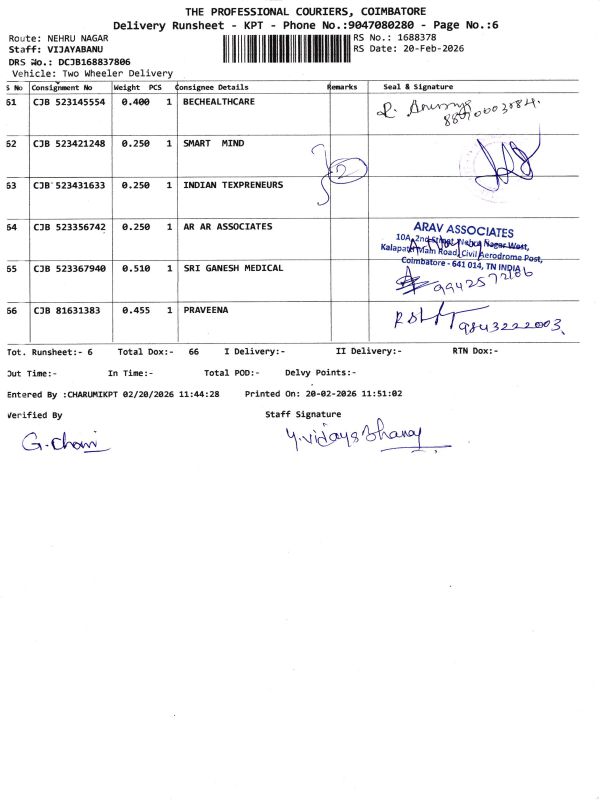 THE PROFESSIONAL COURIERS, COIMBATORE
Delivery Runsheet - KPT - Phone No.:9047080280 - Page No.:6
Route: NEHRU NAGAR RS No.: 1688378
Staff: VIJAYABANU RS Date: 20-Feb-2026
DRS No.: DCJB168837806
Vehicle: Two Wheeler Delivery
S No Consignment No Weight PCS Consignee Details Remarks Seal & Signature
61 CJB 523145554 0.400 1 BECHEALTHCARE
62 CJB 523421248 0.250 1 SMART MIND
2
63 CJB 523431633 0.250 1 INDIAN TEXPRENEURS
64 CJB 523356742 0.250 1 AR AR ASSOCIATES
ARAV ASSOCIATES
10A, 2nd Street, Nehru Nagar West,
Kalapatti Main Road, Civil Aerodrome Post,
Coimbatore - 641 014, TN INDIA
65 CJB 523367940 0.510 1 SRI GANESH MEDICAL
66 CJB 81631383 0.455 1 PRAVEENA
9843222003
Tot. Runsheet:- 6 Total Dox:- 66 I Delivery:- II Delivery:- RTN Dox:-
Out Time:- In Time:- Total POD:- Delvy Points:-
Entered By :CHARUMIKPT 02/20/2026 11:44:28 Printed On: 20-02-2026 11:51:02
Verified By Staff Signature